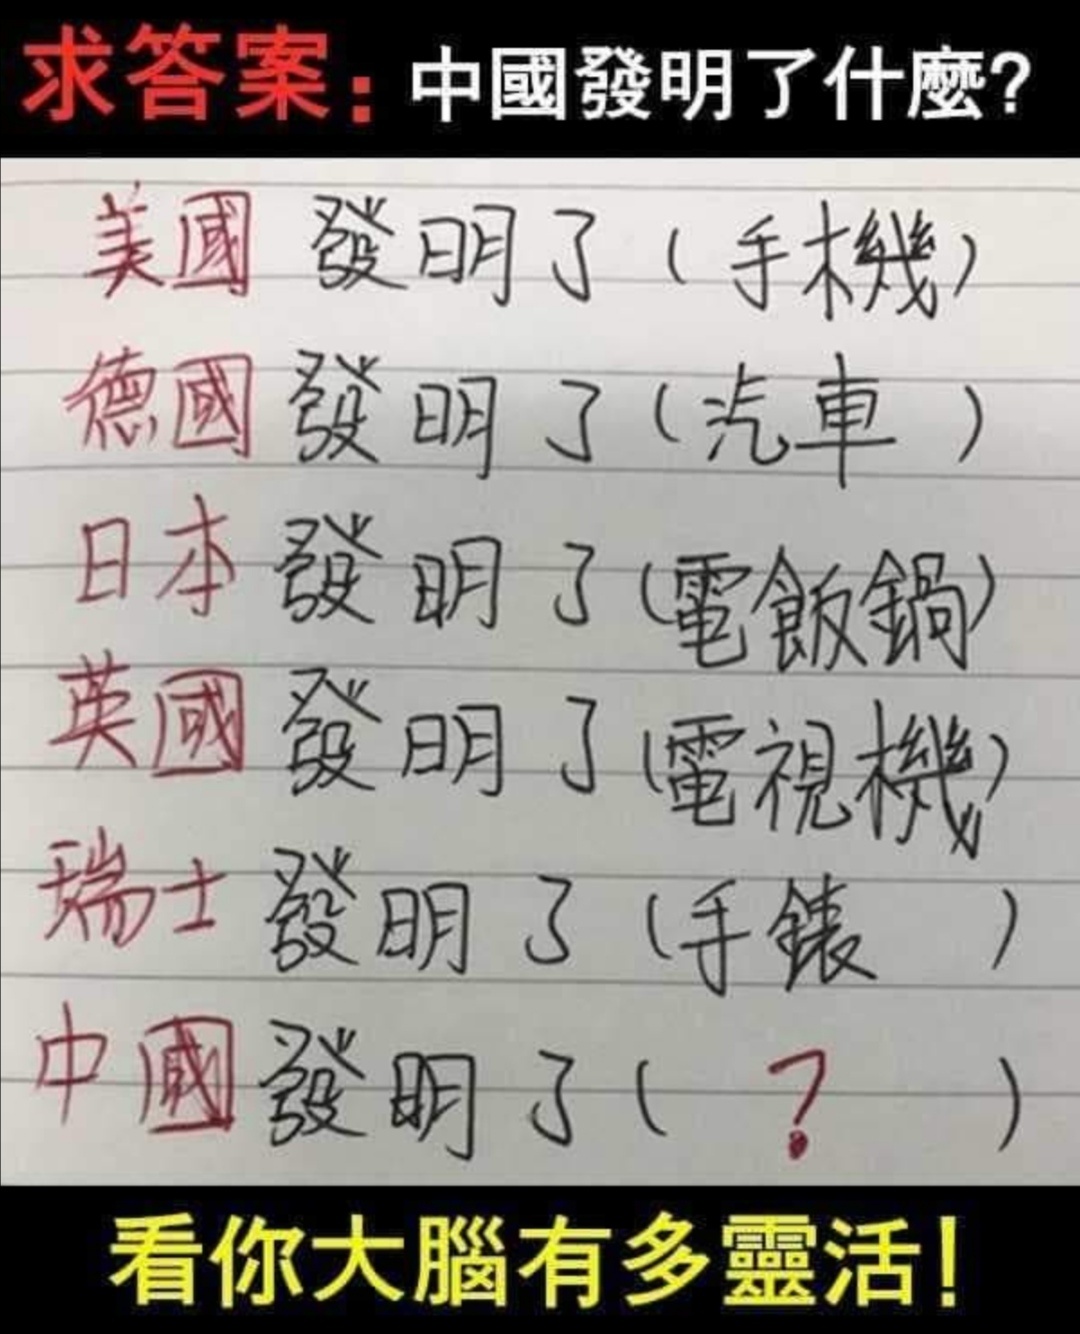 求答案：中國發明了什麼？
美國 發明了（手機）
德國 發明了（汽車 ）
日本 發明了（電飯鍋）
英國 發明了（電視機）
瑞士 發明了（手錶 ）
中國 發明了（ ？ ）
看你大腦有多靈活！